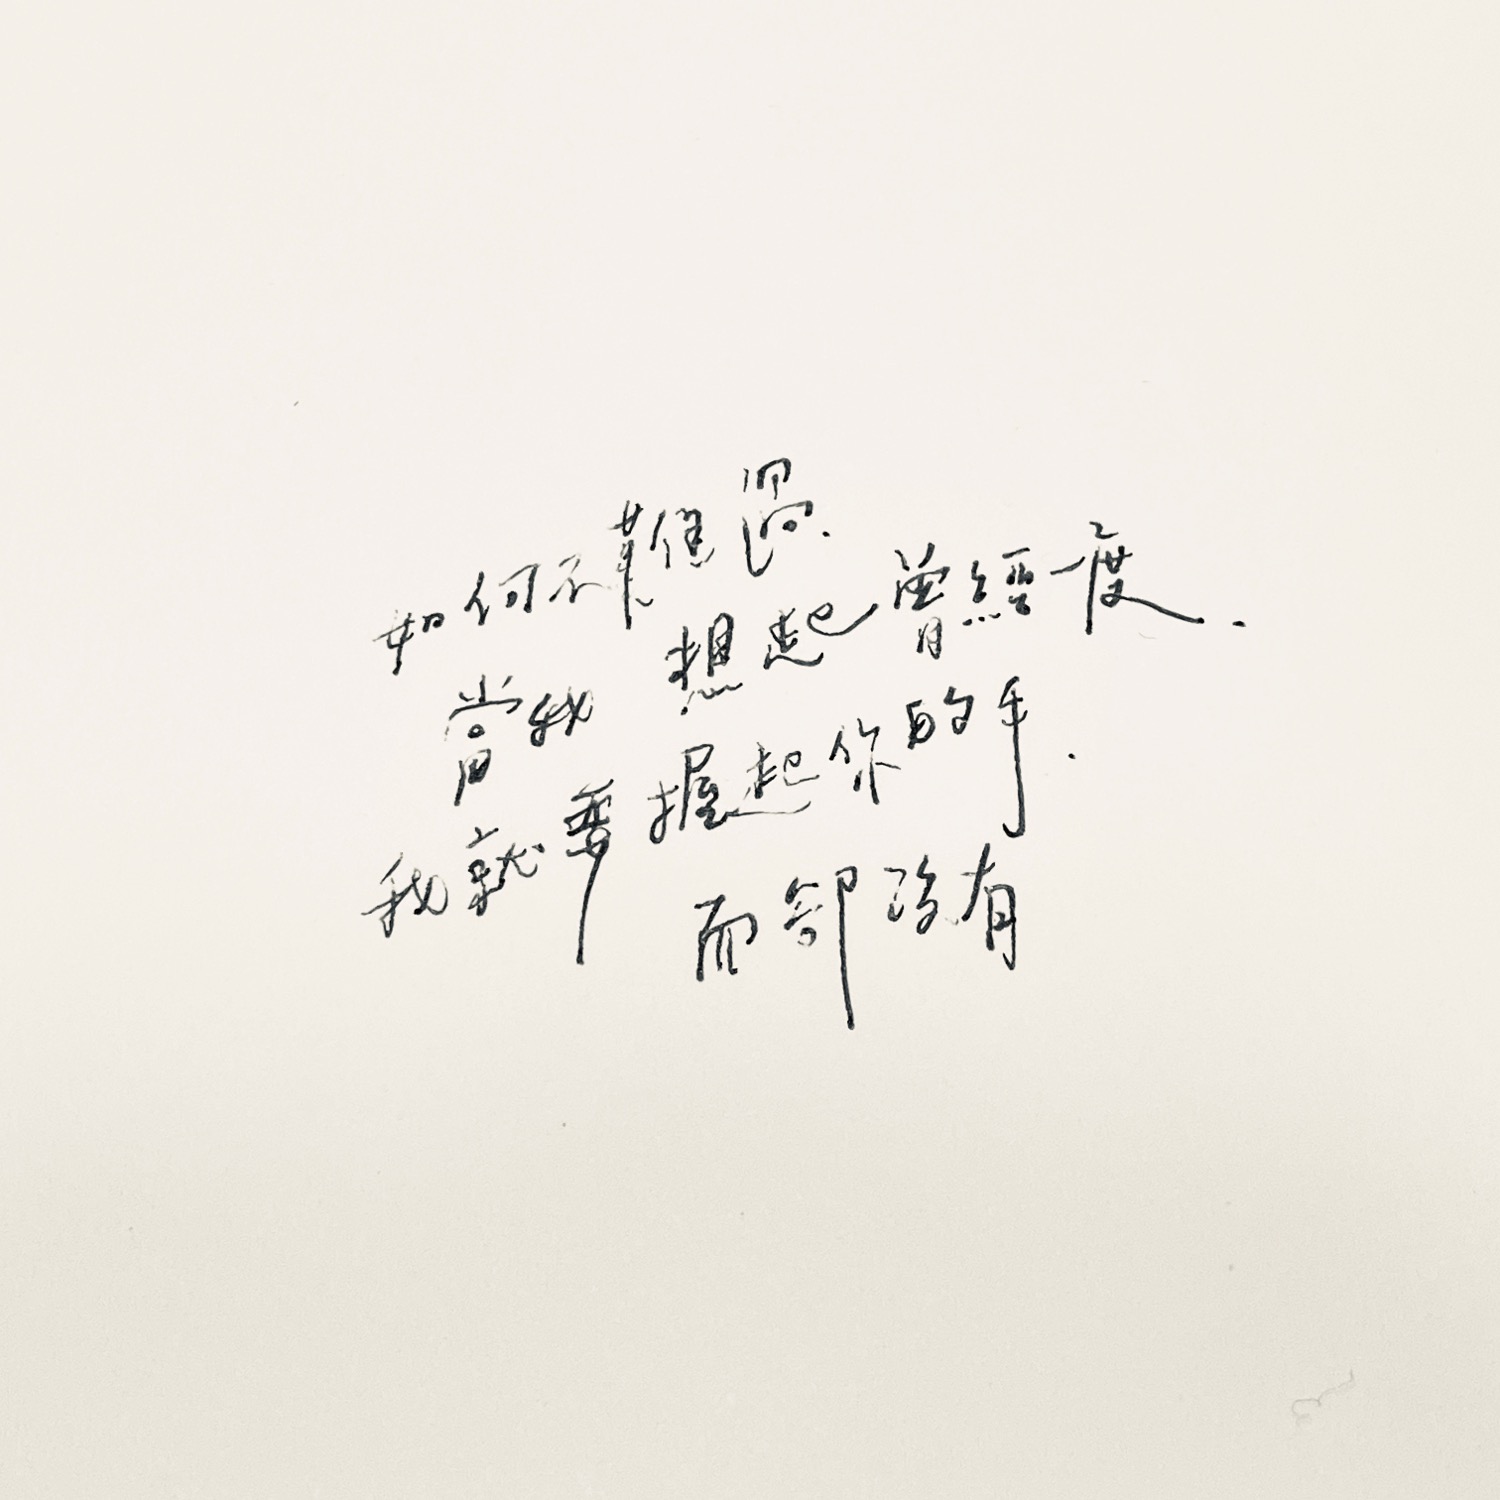 如何不難過.
當我想起曾經一度.
我就要握起你的手.
而卻沒有